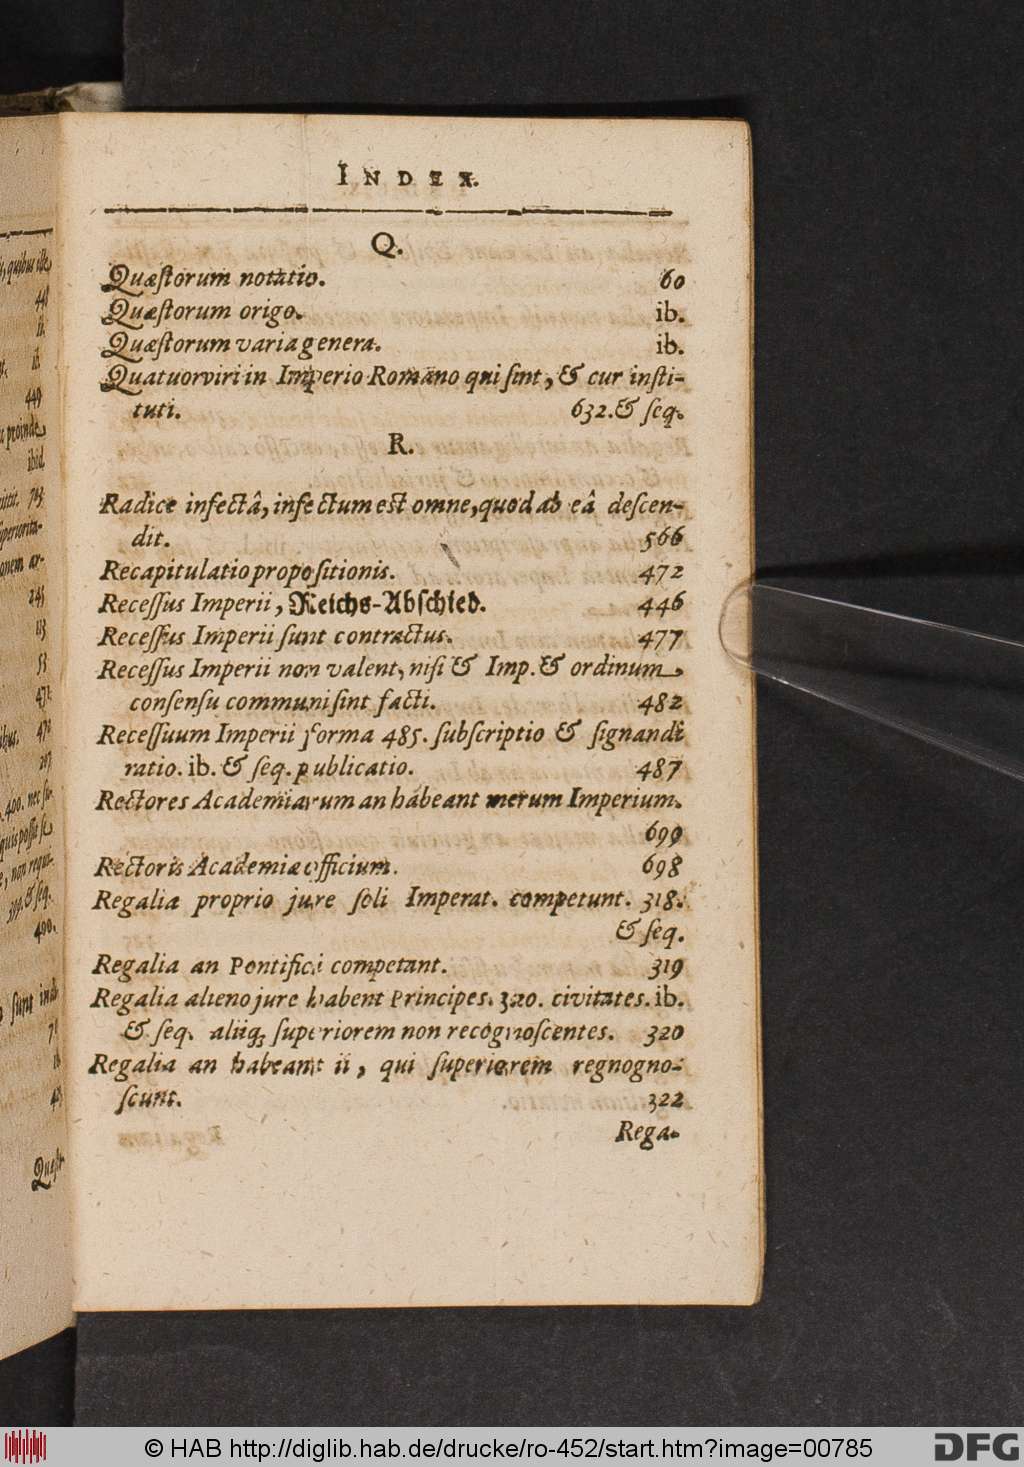 INDEX.
Q.
Quæſtorum notatio. 60
Quæſtorum origo. ib.
Quæſtorum varia genera. ib.
Quatuorviri in Imperio Romano qui ſint, & cur inſti-
tuti. 632. & ſeq.
R.
Radice infectâ, infectum est omne, quod ab eâ deſcen-
dit. 566
Recapitulatio propoſitionis. 472
Receſſus Imperii, Reichs-Abſchied. 446
Receſſus Imperii ſunt contractus. 477
Receſſus Imperii non valent, niſi & Imp. & ordinum
conſenſu communi ſint facti. 482
Receſſuum Imperii forma 485. ſubſcriptio & ſignandi
ratio. ib. & ſeq. publicatio. 487
Rectores Academiarum an habeant merum Imperium.
699
Rectoris Academiæ officium. 698
Regalia proprio jure ſoli Imperat. competunt. 318.
& ſeq.
Regalia an Pontifici competant. 319
Regalia alieno jure habent Principes. 320. civitates. ib.
& ſeq. aliiq; ſuperiorem non recognoſcentes. 320
Regalia an habeant ii, qui ſuperiorem regnogno-
ſcunt. 322
Rega-
quibus eſſe
448
ib.
ib.
449
proinde
ibid.
713
ſuperiorita-
onem ar-
245
113
53
471
472
207
400. nec ſu-
quis poſſit ſe
, non requi-
& ſeq.
400.
ſunt
71
ib
Quæſt-
© HAB http://diglib.hab.de/drucke/ro-452/start.htm?image=00785
DFG